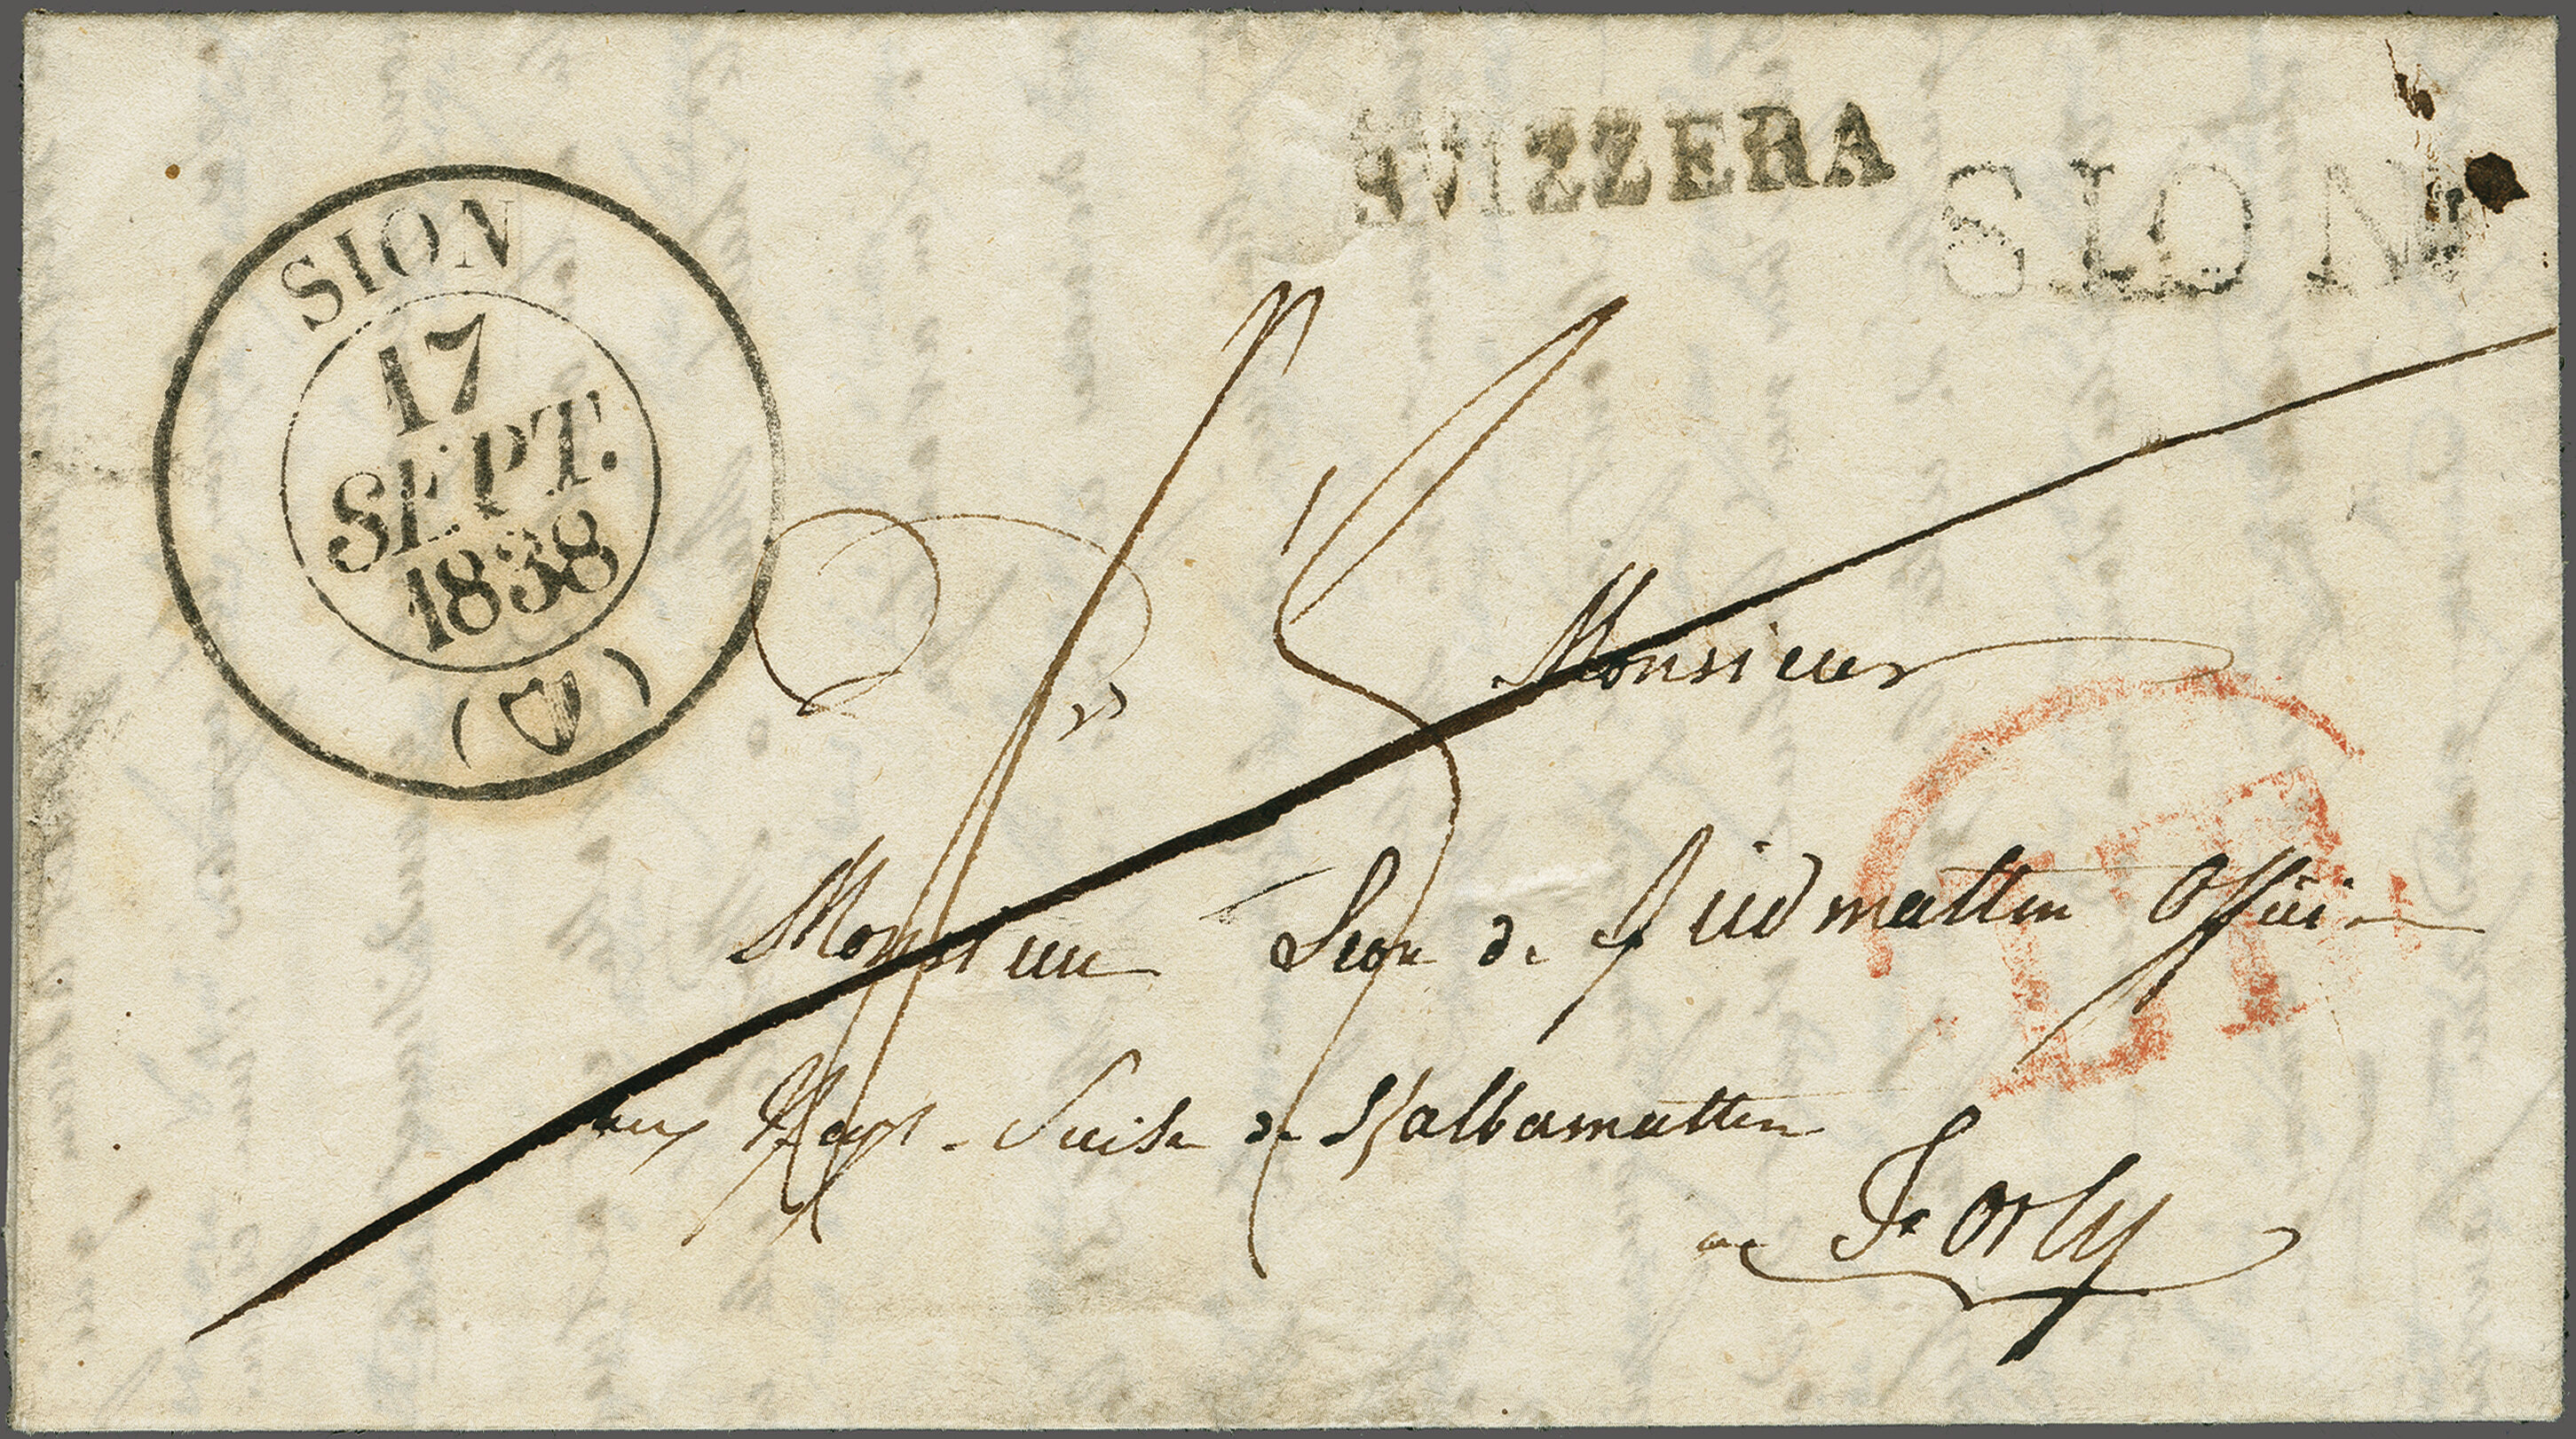 SVIZZERA
SION
SION
17
SEPT.
1838
Monsieur
Monsieur Leon de Riedmatten Offici
aux Regt. Suisse de Kalbermatten
a Forly